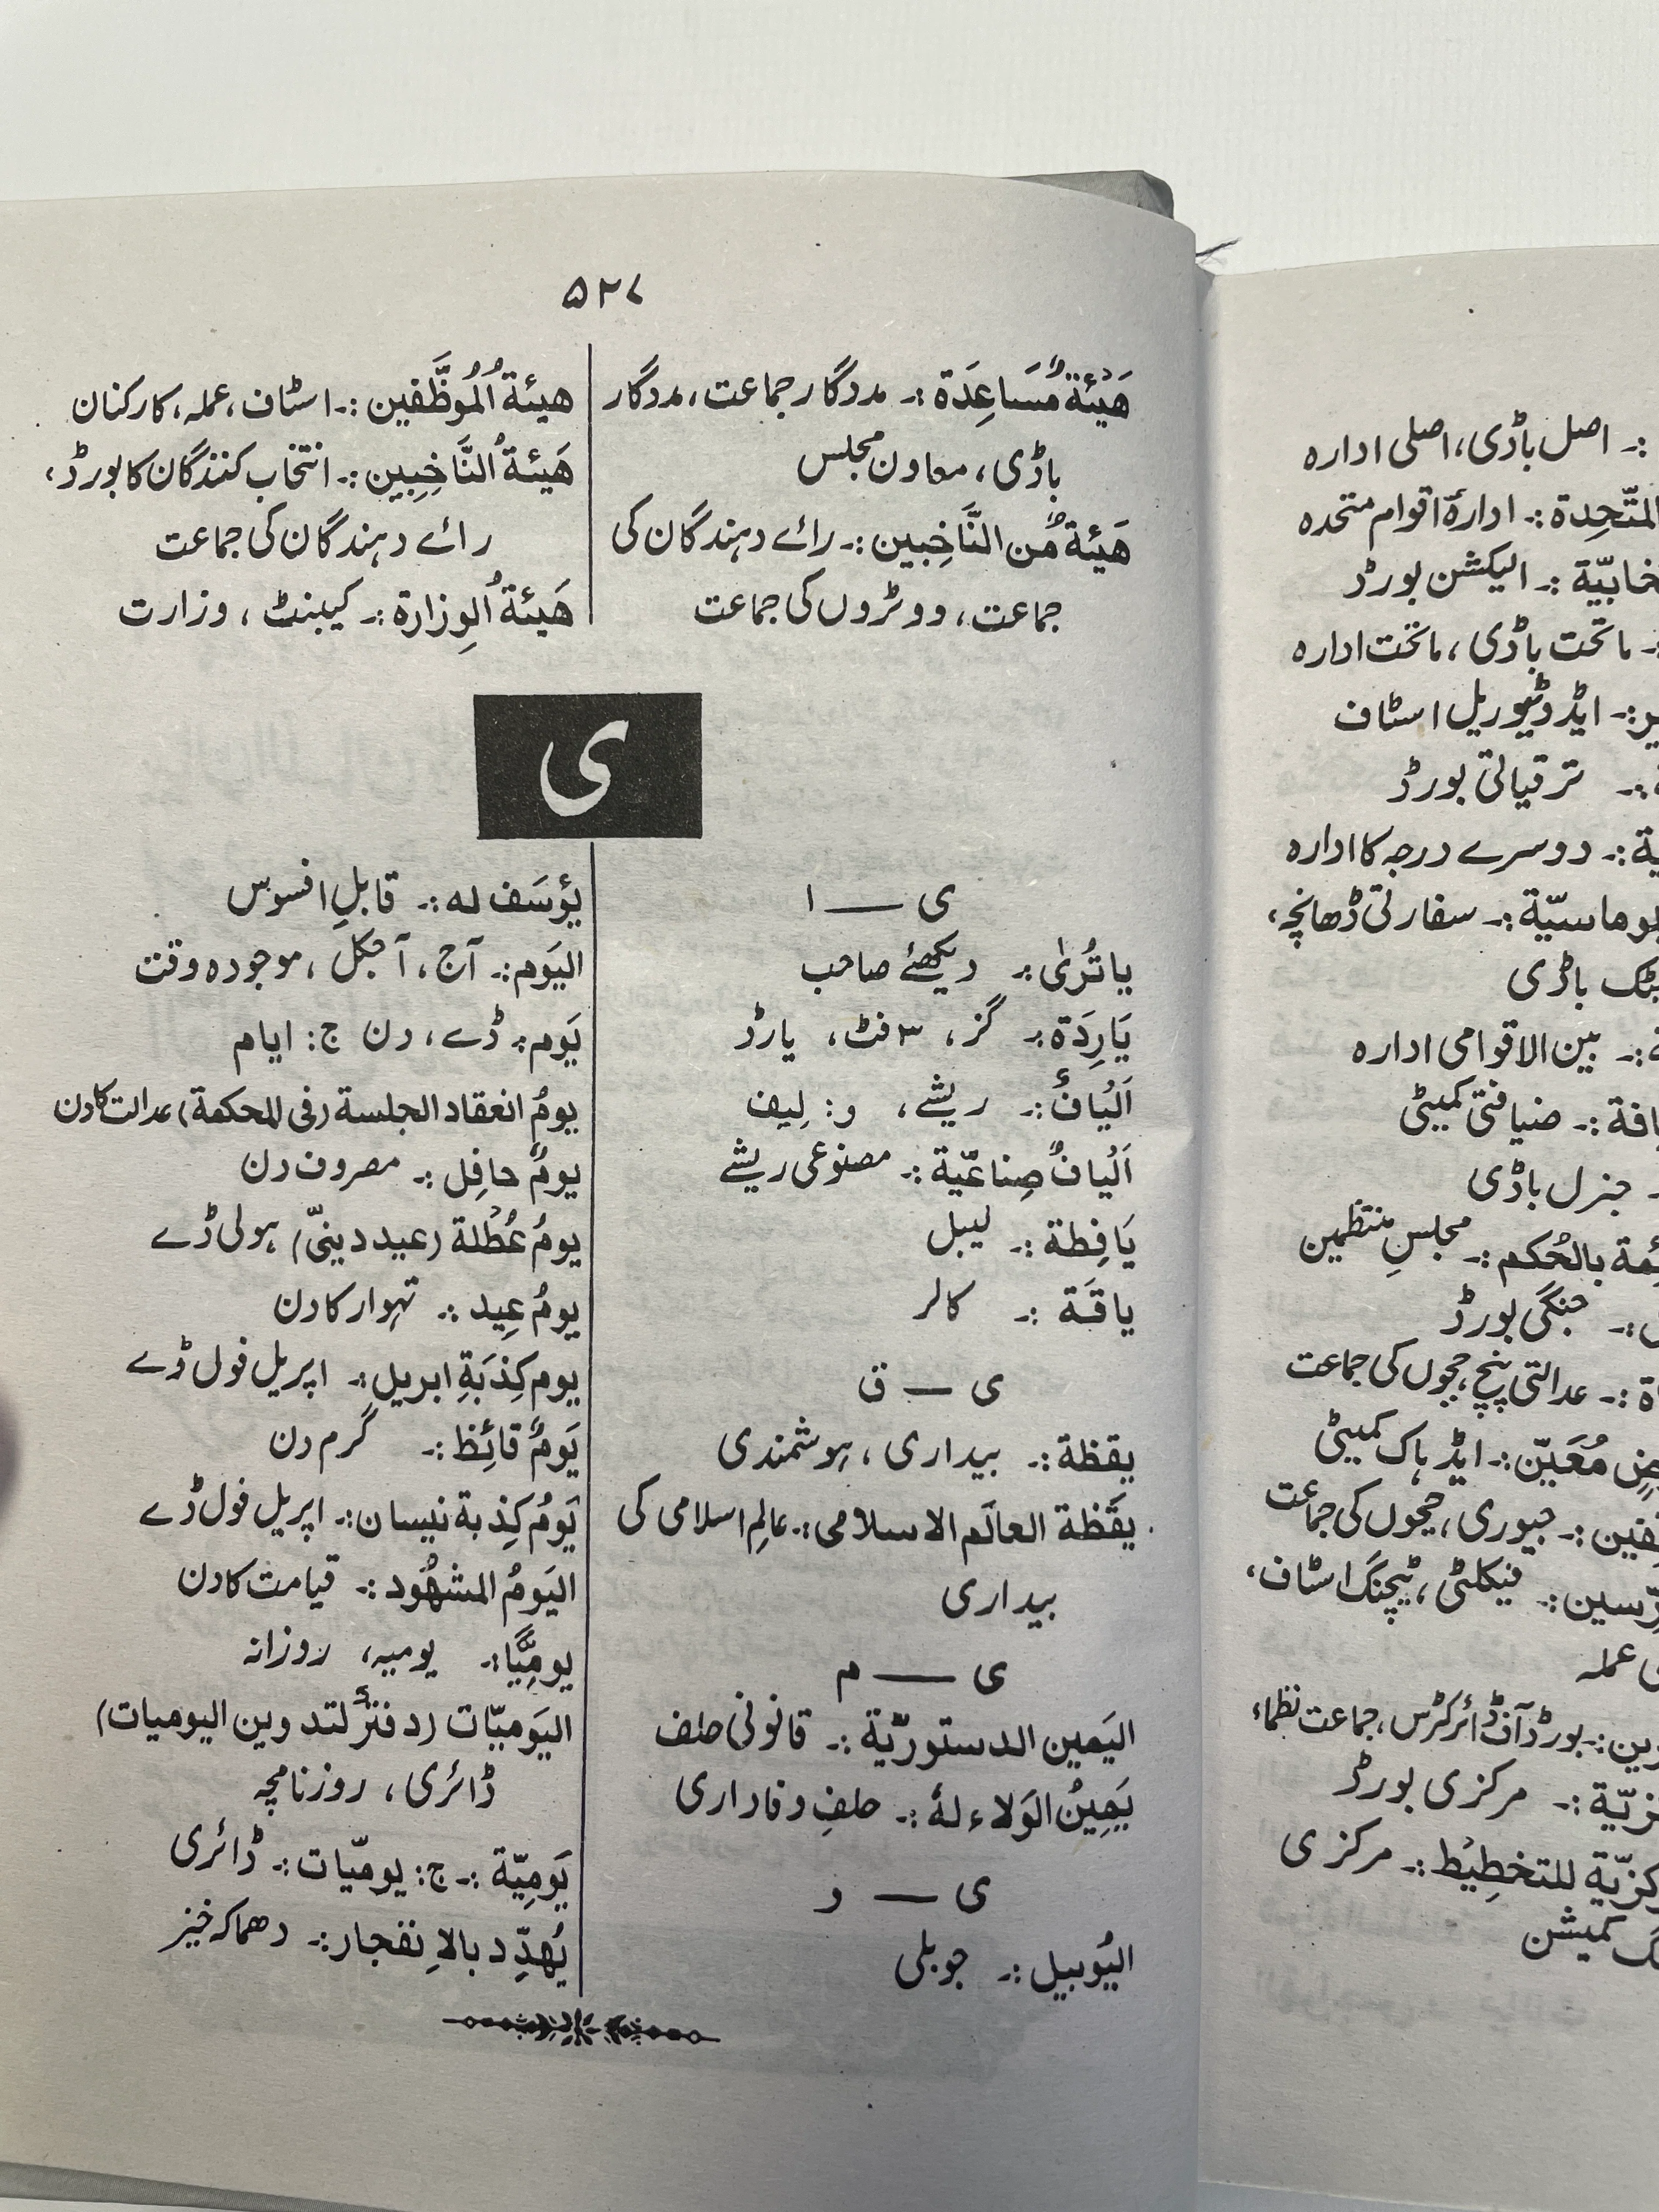 ۵۲۷
هَیْئَةٌ مُّسَاعِدَة :۔ مددگار جماعت، مددگار
باڈی، معاون مجلس
هَیئَةٌ مِّن النَّاخِبین :۔ رائے دہندگان کی
جماعت، ووٹروں کی جماعت
هیئةُ المُوظَّفین :۔ اسٹاف، عملہ، کارکنان
هَیئةُ النَّاخِبِین :۔ انتخاب کنندگان کا بورڈ،
رائے دہندگان کی جماعت
هَیئةُ الوِزارة :۔ کیبنٹ ، وزارت
ی
ی — ا
یا تُرٰی :۔ دیکھئے صاحب
یَارِدَة :۔ گز، ۳ فٹ، یارڈ
اَلیَافٌ :۔ ریشے، و: لِیف
اَلیافٌ صِناعیّة :۔ مصنوعی ریشے
یَافِطة :۔ لیبل
یاقَة :۔ کالر
ی — ق
یقظة :۔ بیداری، ہوشمندی
یقَظة العالَم الاسلامی :۔ عالمِ اسلامی کی
بیداری
ی — م
الیَمین الدستوریّة :۔ قانونی حلف
یَمِیْنُ الوَلاء لهٗ :۔ حلفِ وفاداری
ی — و
الیُوبیل :۔ جوبلی
یؤسَف له :۔ قابلِ افسوس
الیَوم :۔ آج، آجکل، موجودہ وقت
یَوم :۔ ڈے، دن ج: ایام
یومُ انعقاد الجلسة (فی المحکمة) عدالت کا دن
یومٌ حافِل :۔ مصروف دن
یومُ عُطْلة (عید دینیّ) ہولی ڈے
یومُ عِید :۔ تہوار کا دن
یوم کِذبَةِ ابریل :۔ اپریل فول ڈے
یَومٌ قائِظ :۔ گرم دن
یَومُ کِذبة نیسان :۔ اپریل فول ڈے
الیَومُ المشهُود :۔ قیامت کا دن
یومِیًّا :۔ یومیہ، روزانہ
الیَومیّات (دفترٌ لتدوین الیومیات)
ڈائری، روزنامچہ
یَومِیّة :۔ ج: یومیّات :۔ ڈائری
یُهدِّد بالاِنفجار :۔ دھماکہ خیز
:۔ اصل باڈی، اصلی ادارہ
المتّحِدة :۔ ادارۂ اقوام متحدہ
:۔ الیکشن بورڈ
:۔ ماتحت باڈی، ماتحت ادارہ
:۔ ایڈوٹیوریل اسٹاف
:۔ ترقیاتی بورڈ
:۔ دوسرے درجہ کا ادارہ
:۔ سفارتی ڈھانچہ،
باڈی
:۔ بین الاقوامی ادارہ
:۔ ضیافتی کمیٹی
جنرل باڈی
بالحُکم :۔ مجلسِ منتظمین
:۔ جنگی بورڈ
:۔ عدالتی پنچ، ججوں کی جماعت
مُعَیّن :۔ ایڈہاک کمیٹی
:۔ جیوری، ججوں کی جماعت
:۔ فیکلٹی، ٹیچنگ اسٹاف،
عملہ
:۔ بورڈ آف ڈائرکٹرس، جماعت نظماء
:۔ مرکزی بورڈ
للتخطِیْط :۔ مرکزی
کمیشن